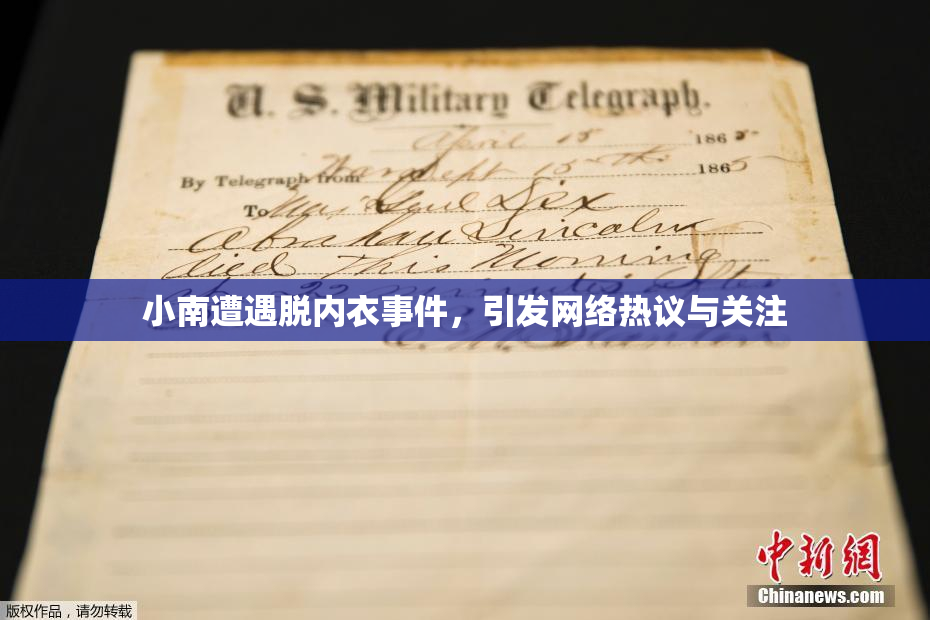 U. S. Military Telegraph.
April 15 1865
By Telegraph from War Dept 15th 1865
To Maj Genl Dix
Abraham Lincoln
died This Morning
at 22 minutes after
小南遭遇脱内衣事件，引发网络热议与关注
E. M. Stanton
中新网
Chinanews.com
版权作品，请勿转载